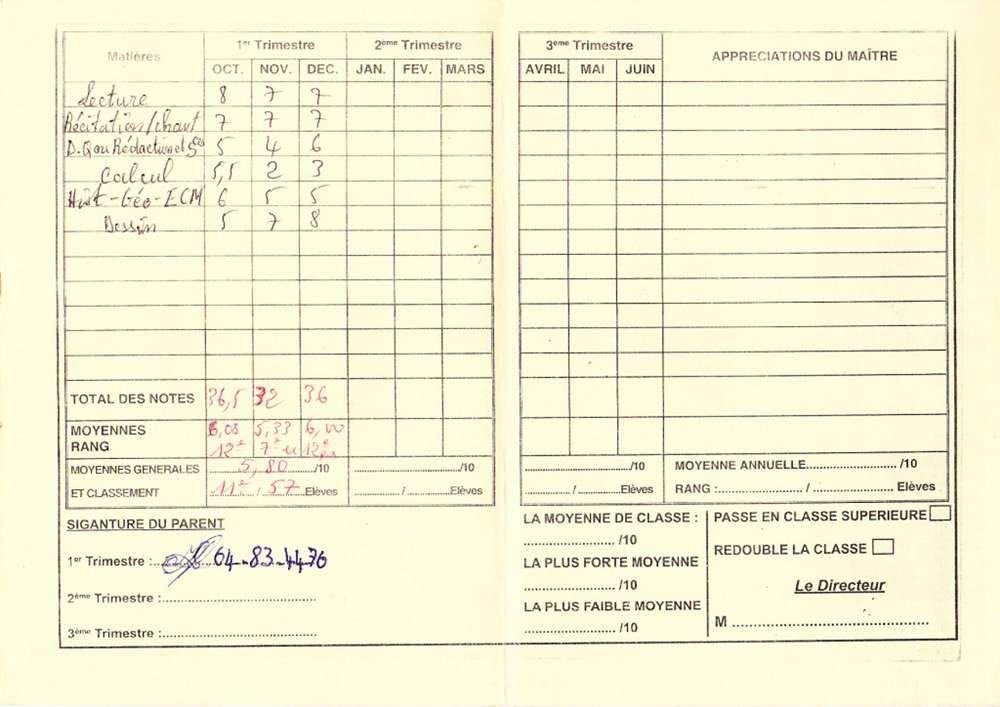 Matières 1er Trimestre 2ème Trimestre
OCT. NOV. DEC. JAN. FEV. MARS
Lecture 8 7 7
Récitation/chant 7 7 7
D.Q ou Rédaction et Sces 5 4 6
Calcul 5,5 2 3
Hist-Géo-ECM 6 5 5
Dessin 5 7 8
TOTAL DES NOTES 36,5 32 36
MOYENNES 6,08 5,33 6,00
RANG 12e 7e 12e
MOYENNES GENERALES 5,80 /10 /10
ET CLASSEMENT 11e / 57 Elèves / Elèves
SIGANTURE DU PARENT
1er Trimestre : 64-83-44-36
2ème Trimestre :
3ème Trimestre :
3ème Trimestre APPRECIATIONS DU MAÎTRE
AVRIL MAI JUIN
/10 MOYENNE ANNUELLE /10
/ Elèves RANG : / Elèves
LA MOYENNE DE CLASSE :
/10
LA PLUS FORTE MOYENNE
/10
LA PLUS FAIBLE MOYENNE
/10
PASSE EN CLASSE SUPERIEURE
REDOUBLE LA CLASSE
Le Directeur
M